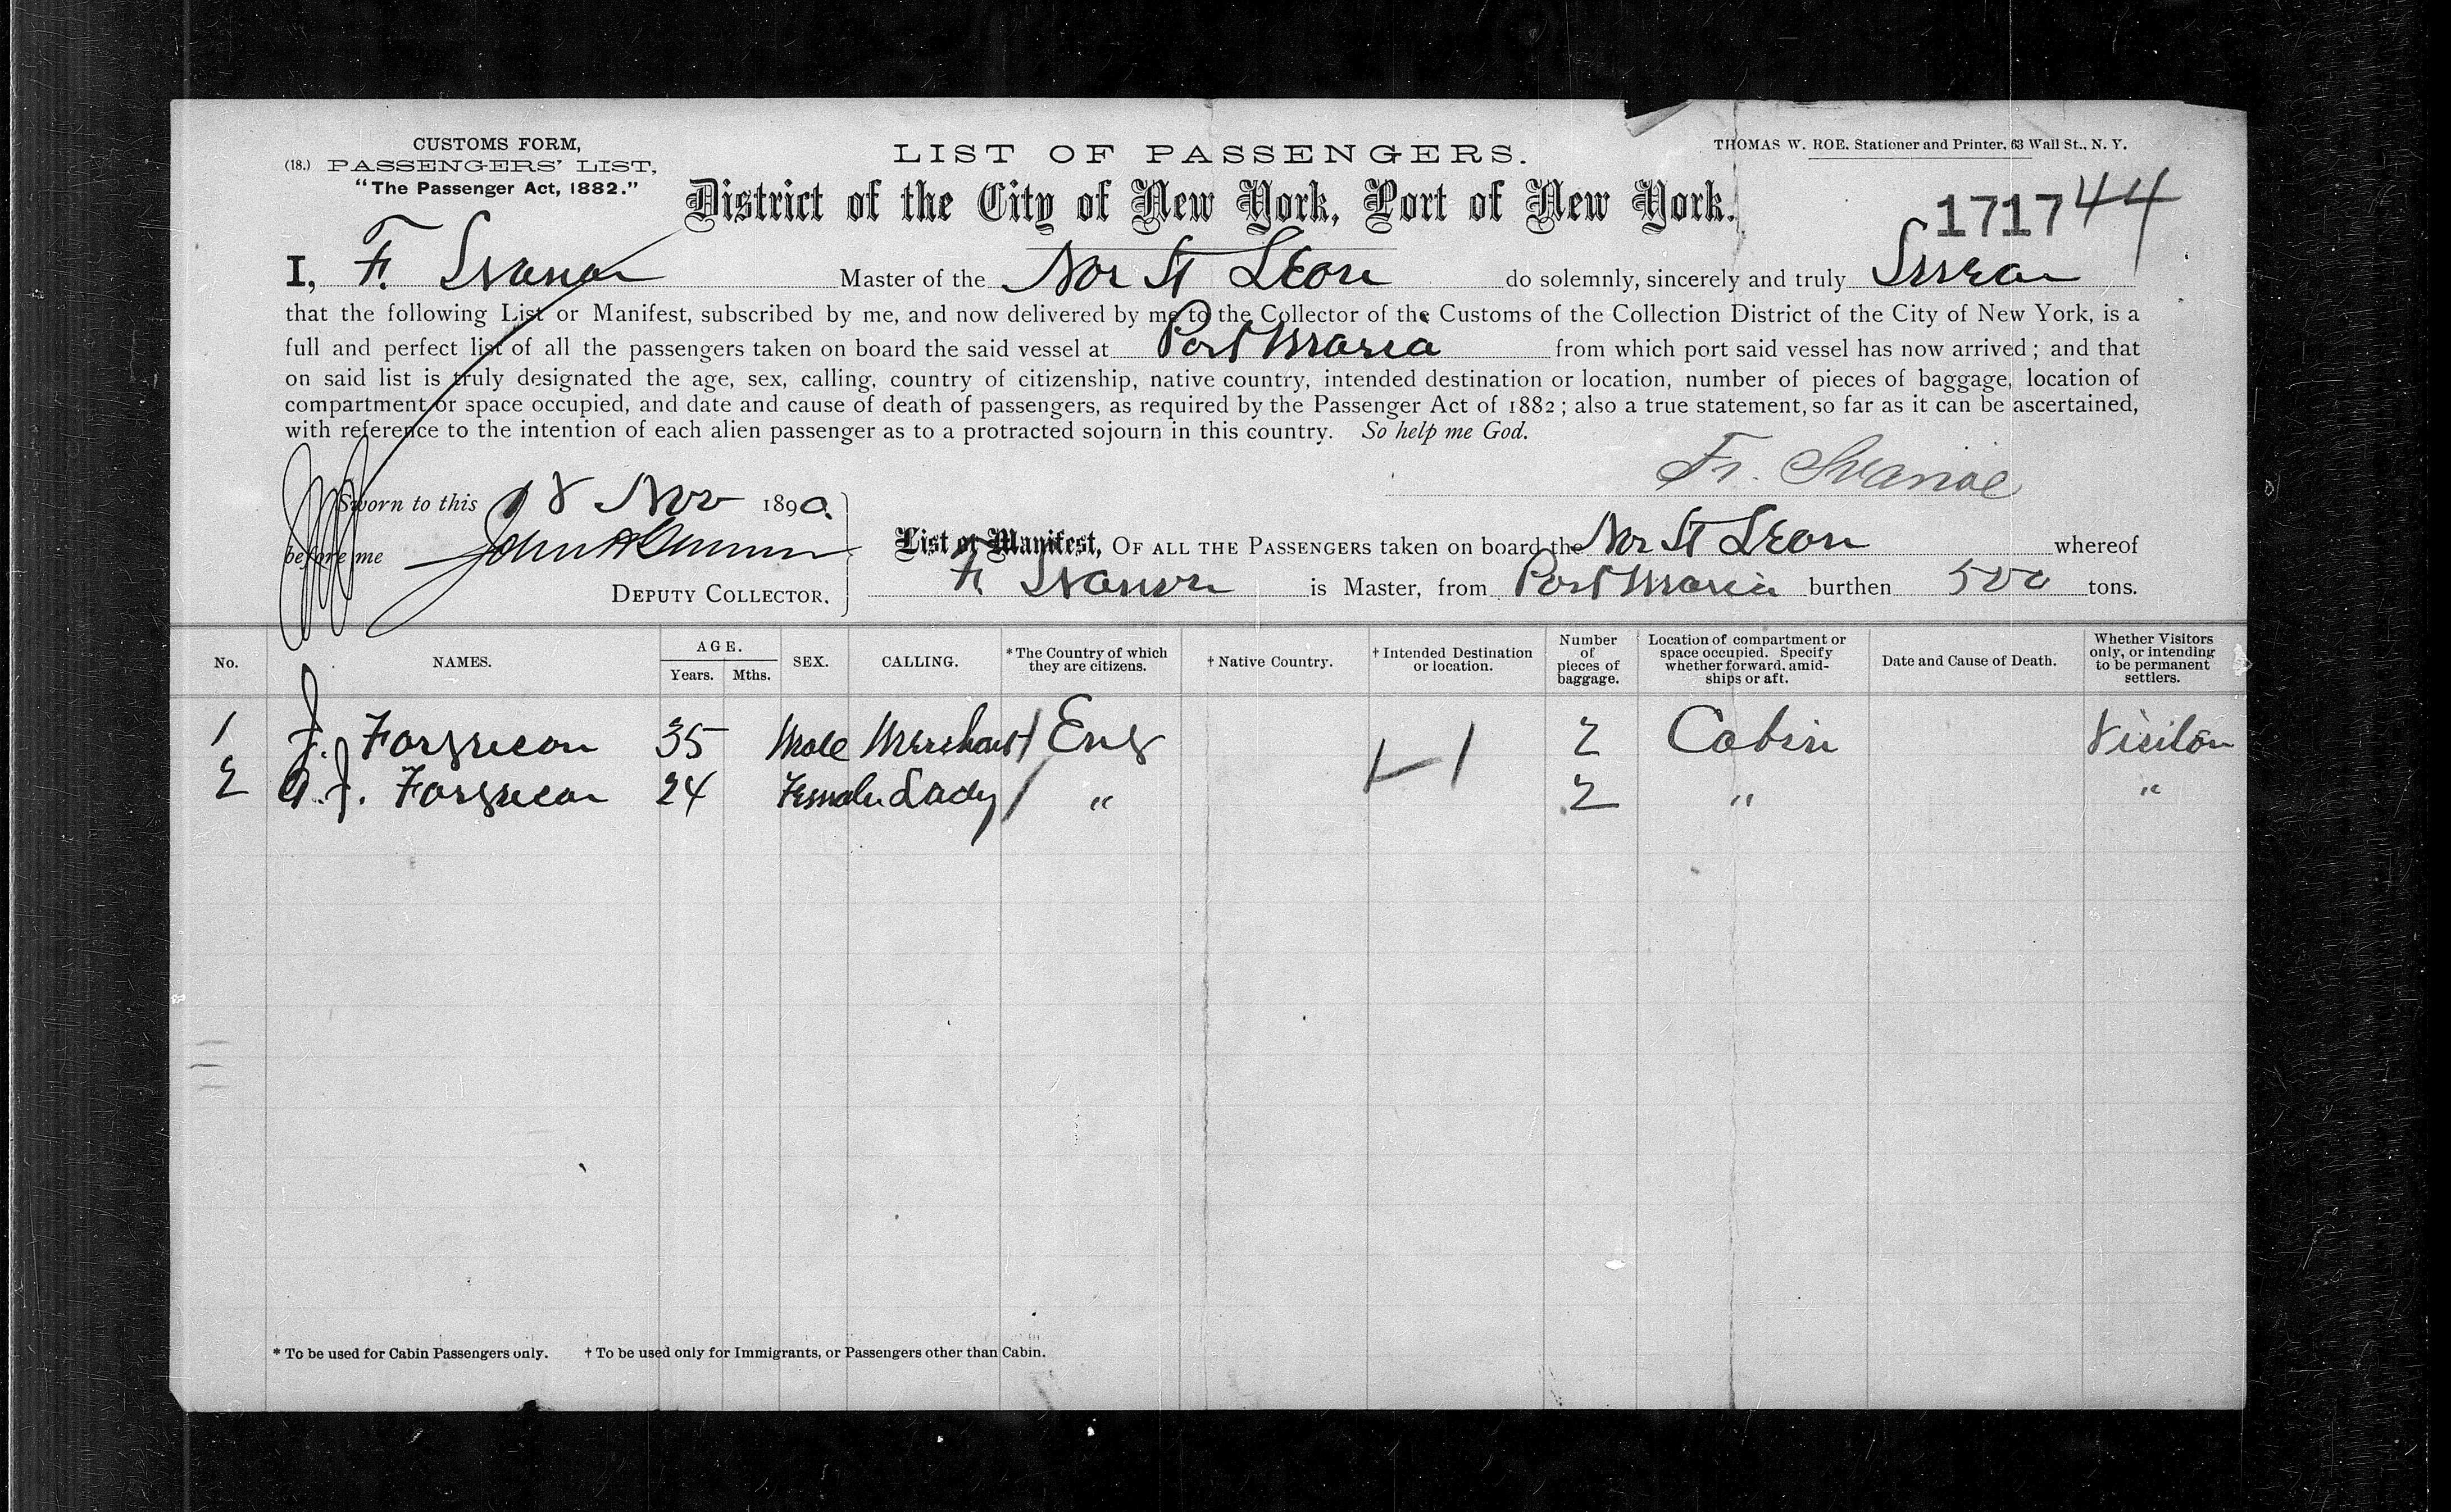 CUSTOMS FORM,
(18.) PASSENGERS' LIST,
"The Passenger Act, 1882."
LIST OF PASSENGERS.
THOMAS W. ROE, Stationer and Printer, 63 Wall St., N. Y.
District of the City of New York, Port of New York.
171744
I, F. Master of the Nor St Leon do solemnly, sincerely and truly Swear
that the following List or Manifest, subscribed by me, and now delivered by me to the Collector of the Customs of the Collection District of the City of New York, is a
full and perfect list of all the passengers taken on board the said vessel at Port Maria from which port said vessel has now arrived; and that
on said list is truly designated the age, sex, calling, country of citizenship, native country, intended destination or location, number of pieces of baggage, location of
compartment or space occupied, and date and cause of death of passengers, as required by the Passenger Act of 1882; also a true statement, so far as it can be ascertained,
with reference to the intention of each alien passenger as to a protracted sojourn in this country. So help me God.
Fr. Svanoe
Sworn to this 18 Nov 1890.
before me John
DEPUTY COLLECTOR.
List or Manifest, OF ALL THE PASSENGERS taken on board the Nor St Leon whereof
F. is Master, from Port Maria burthen 500 tons.
No. NAMES. AGE. Years. Mths. SEX. CALLING. *The Country of which they are citizens. † Native Country. † Intended Destination or location. Number of pieces of baggage. Location of compartment or space occupied. Specify whether forward, amidships or aft. Date and Cause of Death. Whether Visitors only, or intending to be permanent settlers.
1 J. Forgrecon 35 Male Merchant Eng 2 Cabin Visitor
2 A. J. Forgrecon 24 Female Lady " 2 " "
* To be used for Cabin Passengers only. † To be used only for Immigrants, or Passengers other than Cabin.